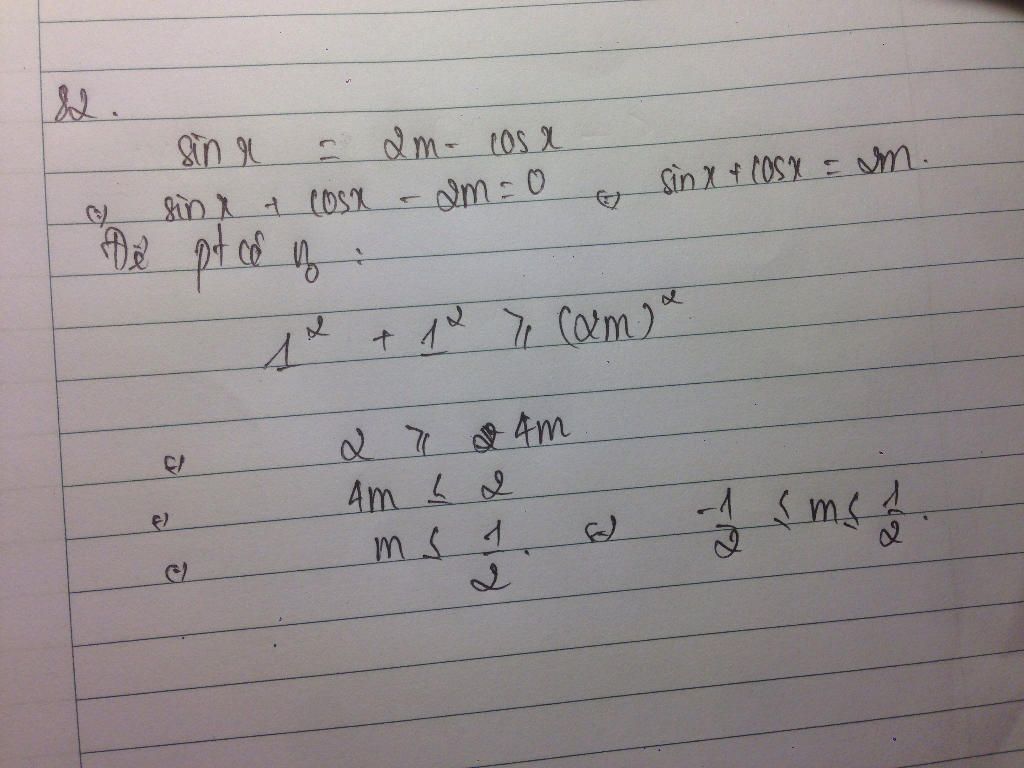 82.
sin x = 2m - cos x
⇔ sin x + cosx - 2m = 0 ⇔ sin x + cosx = 2m.
Để pt có n₀ :
1² + 1² ⩾ (2m)²
⇔ 2 ⩾ 4m
⇔ 4m ≤ 2
⇔ m ≤ 1/2. ⇔ -1/2 ≤ m ≤ 1/2.